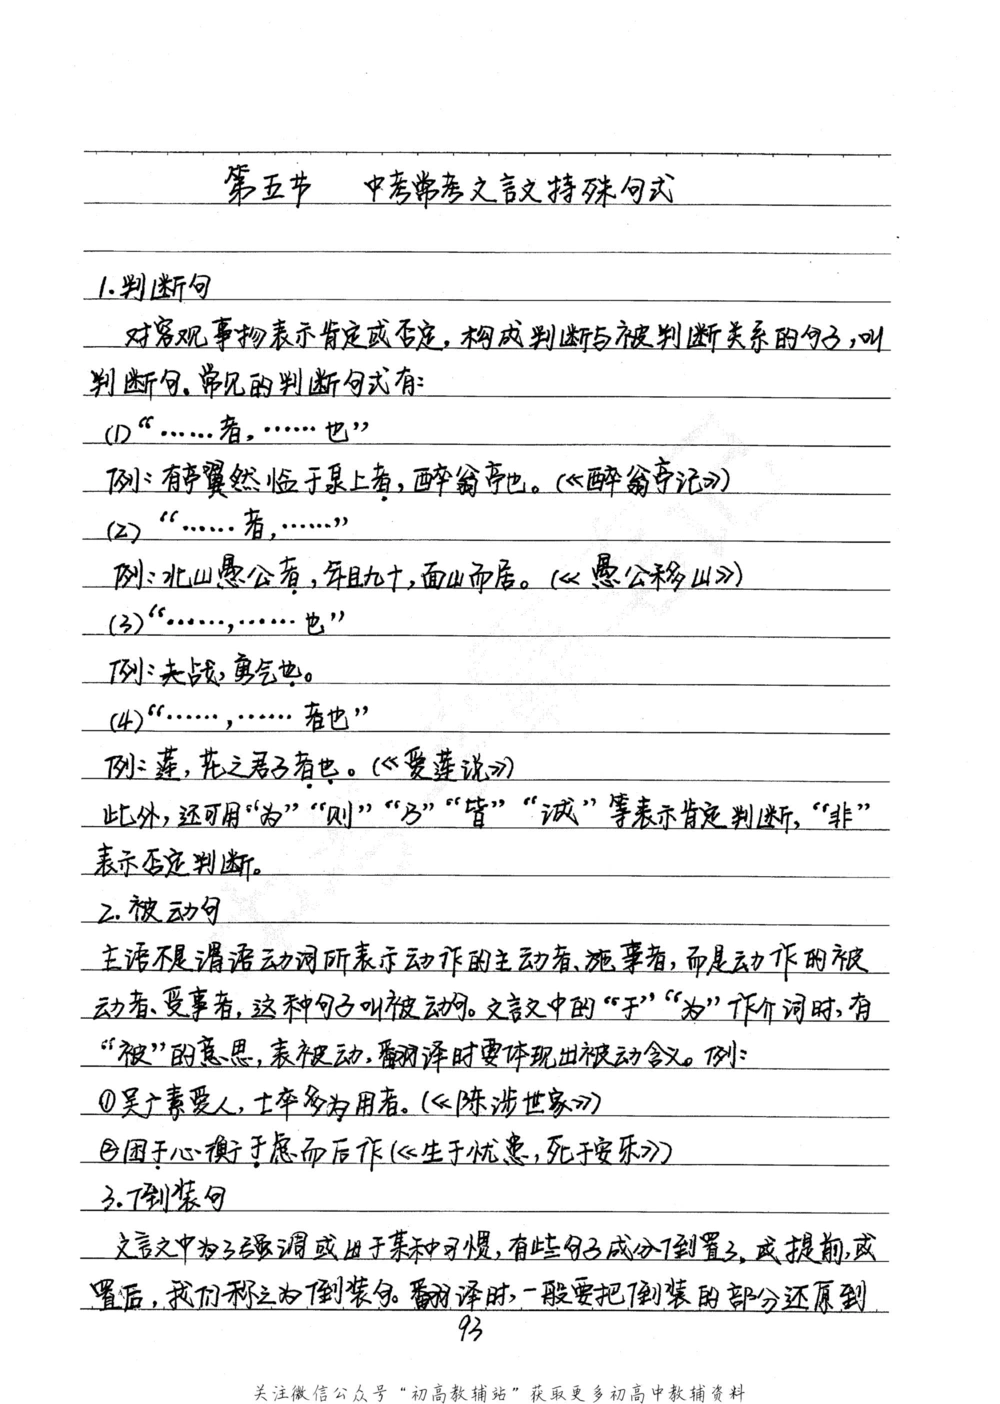 第五节 中考常考文言文特殊句式
1.判断句
对客观事物表示肯定或否定，构成判断与被判断关系的句子，叫
判断句。常见的判断句式有：
(1)“……者，……也”
例：有亭翼然临于泉上者，醉翁亭也。(《醉翁亭记》)
(2) “……者，……”
例：北山愚公者，年且九十，面山而居。(《愚公移山》)
(3)“……，……也”
例：夫战，勇气也。
(4)“……，……者也”
例：莲，花之君子者也。(《爱莲说》)
此外，还可用“为”“则”“乃”“皆”“诚”等表示肯定判断，“非”
表示否定判断。
2.被动句
主语不是谓语动词所表示动作的主动者、施事者，而是动作的被
动者、受事者，这种句子叫被动句。文言文中的“于”“为”作介词时，有
“被”的意思，表被动，翻译时要体现出被动含义。例：
①吴广素爱人，士卒多为用者。(《陈涉世家》)
②困于心衡于虑而后作(《生于忧患，死于安乐》)
3.倒装句
文言文中为了强调或出于某种习惯，有些句子成分倒置了，或提前，或
置后，我们称之为倒装句。翻译时，一般要把倒装的部分还原到
93
关注微信公众号“初高教辅站”获取更多初高中教辅资料